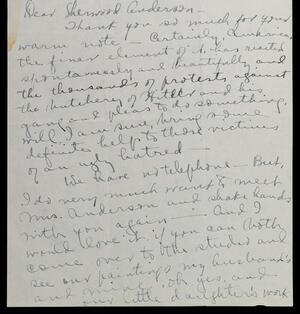 Dear Sherwood Anderson –
Thank you so much for your
warm note – Certainly, America,
the finer element of it, has reacted
spontaneously and beautifully and
the thousands of protests against
the butchery of Hitler and his
gang and pleas to do something,
will, I am sure, bring some
definite help to those victims
of an ugly hatred –
We have no telephone – But,
I do very much want to meet
Mrs. Anderson and shake hands
with you again – And I
would love it if you can both
come over to the studio and
see our paintings my husband's
and mine, oh yes, and
our little daughter's work